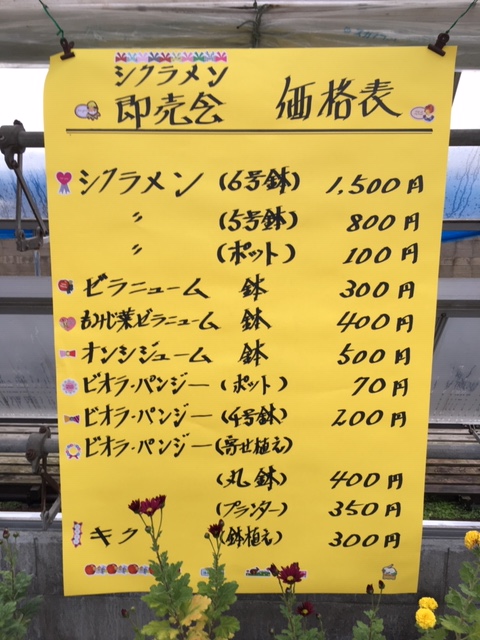 シクラメン
即売会 価格表
シクラメン (6号鉢) 1,500円
〃 (5号鉢) 800円
〃 (ポット) 100円
ゼラニューム 鉢 300円
もみじ葉ゼラニューム 鉢 400円
オンシジューム 鉢 500円
ビオラ・パンジー (ポット) 70円
ビオラ・パンジー (4号鉢) 200円
ビオラ・パンジー (寄せ植え)
(丸鉢) 400円
(プランター) 350円
キク (鉢植え) 300円